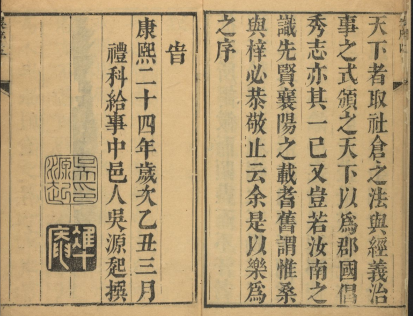 天下者取社倉之法與經義治
事之式頒之天下以爲郡國倡
秀志亦其一已又豈若汝南之
識先賢襄陽之載耆舊謂惟桑
與梓必恭敬止云余是以樂爲
之序
旹
康熙二十四年歲次乙丑三月
禮科給事中邑人吳源起撰
吳印
源起